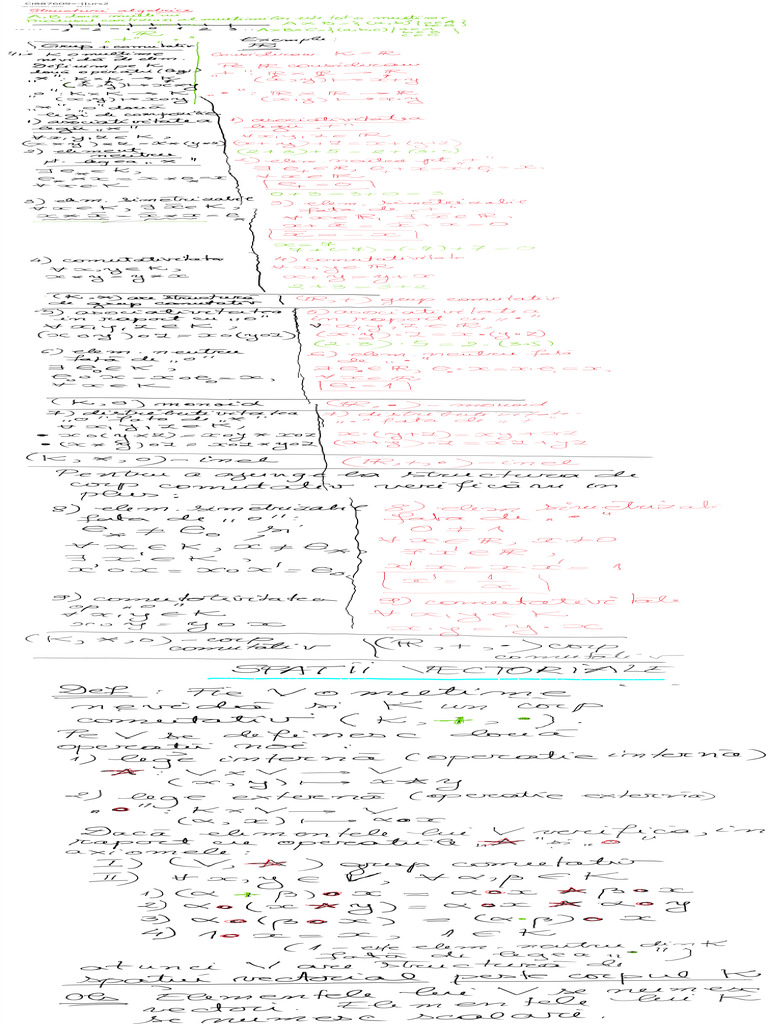 Structuri algebice
A, B două mulțimi
A×B = { (a,b) | a∈A, b∈B }
A×B×C = { (a,b,c) | a∈A, b∈B, c∈C }
Exemple:
Grup + comutativ
K o mulțime
nevidă de elem.
Definim pe K
două operații (legi)
"*": K×K → K
(x,y) ↦ x*y
"o": K×K → K
(x,y) ↦ xoy
"*", "o" două
legi de compoziție
1) asociativitatea
legii "*"
∀ x,y,z ∈ K,
(x*y)*z = x*(y*z)
2) element
neutru
pt. legea "*"
∃ e* ∈ K,
e* * x = x * e* = x
∀ x ∈ K
3) elem. simetrizabil
∀ x ∈ K, ∃ x̄ ∈ K,
x * x̄ = x̄ * x = e*
4) comutativitatea
∀ x,y ∈ K,
x*y = y*x
(K, *) are structură
de grup comutativ
5) asociativitatea
în raport cu "o"
∀ x,y,z ∈ K,
(xoy)oz = xo(yoz)
6) elem. neutru
față de "o"
∃ e₀ ∈ K,
e₀ox = xoe₀ = x,
∀ x ∈ K
(K, o) monoid
7) distributivitatea
"o" față de "*"
∀ x,y,z ∈ K,
• xo(y*z) = xoy * xoz
• (x*y)oz = xoz * yoz
(K, *, o) - inel
IR
Considerăm K = IR
Pe IR considerăm
"+": IR×IR → IR
(x,y) ↦ x+y
"•": IR×IR → IR
(x,y) ↦ x·y
1) asociativitatea
legii "+"
∀ x,y,z ∈ IR
(x+y)+z = x+(y+z)
2) elem neutru pt "+"
∃ e₊ ∈ IR, e₊+x = x+e₊ = x
∀ x ∈ IR
e₊ = 0
0+3 = 3+0 = 3
3) elem. simetrizabil
față de "+"
∀ x ∈ IR, ∃ x̄ ∈ IR,
x+x̄ = x̄+x = 0
x̄ = -x
x = 7
7+(-7) = (-7)+7 = 0
4) comutativitate
∀ x,y ∈ IR
x+y = y+x
2+3 = 3+2
(IR, +) grup comutativ
5) asociativitatea
în raport cu "•"
∀ x,y,z ∈ IR,
(x·y)·z = x·(y·z)
(2·3)·5 = 2·(3·5)
6) elem. neutru față
de "•"
∃ e. ∈ IR, e.·x = x·e. = x,
∀ x ∈ IR
e. = 1
(IR, •) - monoid
7) distributivitate
x·(y+z) = xy + xz
(x+y)·z = xz + yz
(IR, +, •) - inel
Pentru a ajunge la structura de
corp comutativ verificăm în
plus:
8) elem. simetrizabil
față de "o":
e* ≠ e₀ și
∀ x ∈ K, x ≠ e*,
∃ x' ∈ K,
x'ox = xox' = e₀
9) comutativitatea
op. "o"
∀ x,y ∈ K
xoy = yox
(K, *, o) - corp
comutativ
8) elem. simetrizabil
față de "•"
0 ≠ 1
∀ x ∈ IR, x ≠ 0
∃ x' ∈ IR,
x'·x = x·x' = 1
x' = 1/x
9) comutativitate
∀ x,y ∈ K
x·y = y·x
(IR, +, •) corp
comutativ
SPAȚII VECTORIALE
Def: Fie V o mulțime
nevidă și K un corp
comutativ (K, +, •).
Pe V se definesc două
operații noi:
1) lege internă (operație internă)
"*": V×V → V
(x,y) ↦ x*y
2) lege externă (operație externă)
"o": K×V → V
(α,x) ↦ αox
Dacă elementele lui V verifică, în
raport cu operațiile "*" și "o"
axiomele:
I) (V, *) grup comutativ
II) ∀ x,y ∈ V, ∀ α,β ∈ K
1) (α + β)ox = αox * βox
2) αo(x * y) = αox * αoy
3) αo(βox) = (α·β)ox
4) 1ox = x, 1 ∈ K
(1 - este elem. neutru din K
față de legea "•")
atunci V are structură de
spațiu vectorial peste corpul K
Obs Elementele lui V se numesc
vectori. Elementele lui K
se numesc scalari.